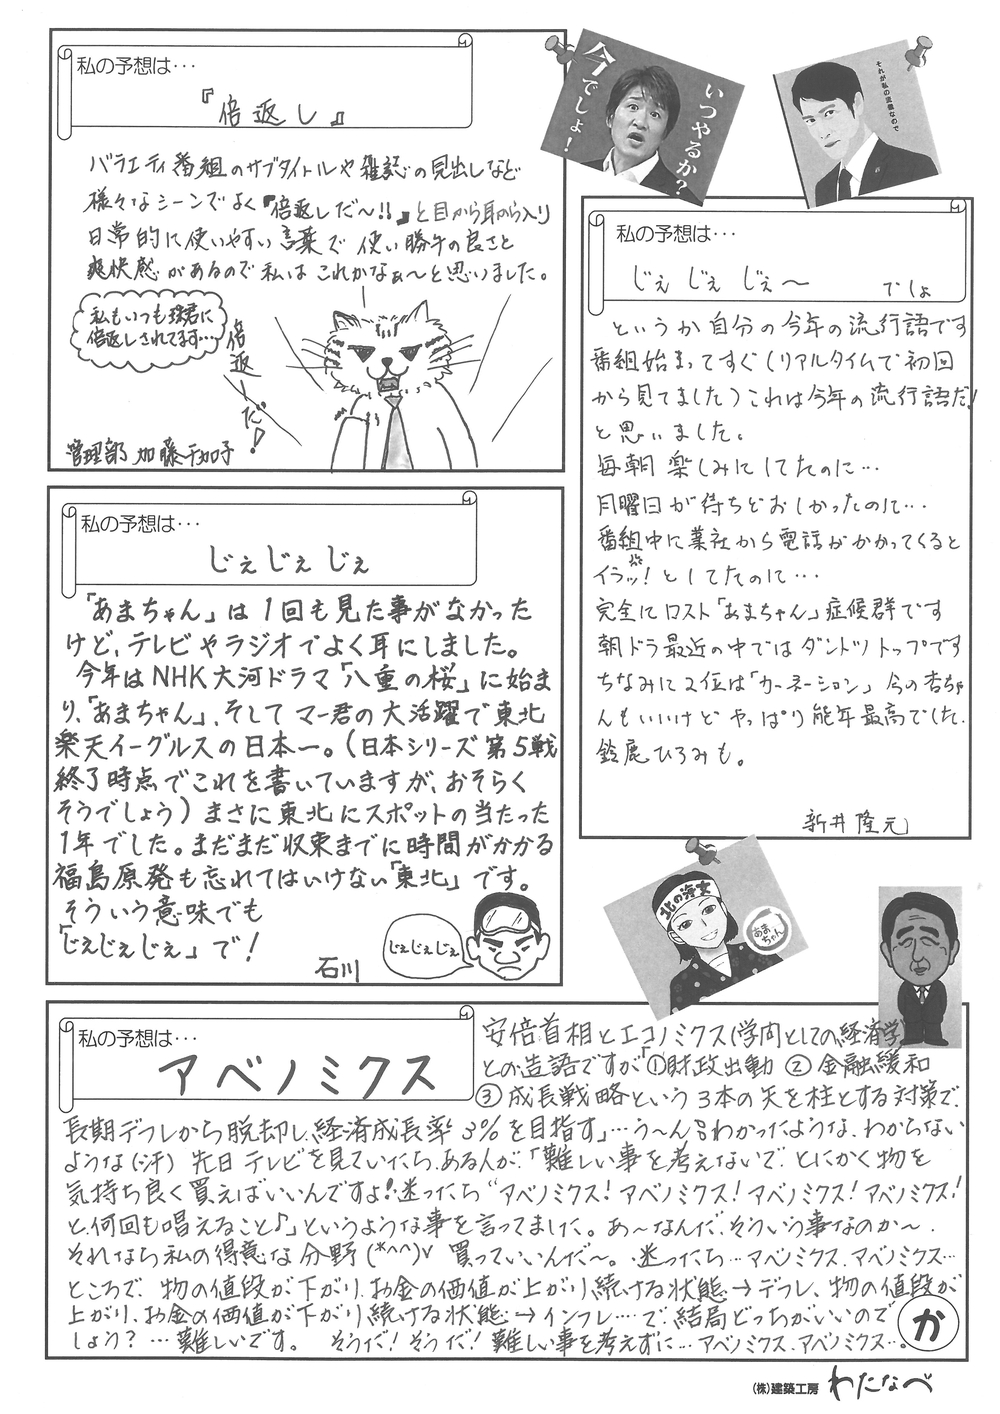 私の予想は…
『倍返し』
バラエティ番組のサブタイトルや雑誌の見出しなど
様々なシーンでよく『倍返しだ～!!』と目から耳から入り
日常的に使いやすい言葉で使い勝手の良さと
爽快感があるので私はこれかなぁ～と思いました。
私もいつも珠君に
倍返しされてます…
倍返しだ!
管理部 加藤千加子
今でしょ!
いつやるか?
それが私の流儀なので
私の予想は…
じぇ じぇ じぇ～ でしょ
というか自分の今年の流行語です
番組始まってすぐ(リアルタイムで初回
から見てました)これは今年の流行語だ!
と思いました。
毎朝楽しみにしてたのに…
月曜日が待ちどおしかったのに…
番組中に業社から電話がかかってくると
イラッ!としてたのに…
完全にロスト「あまちゃん」症候群です
朝ドラ最近の中ではダントツトップです
ちなみに2位は「カーネーション」今の杏ちゃ
んもいいけどやっぱり能年最高でした.
鈴鹿ひろみも。
新井隆元
私の予想は…
じぇじぇじぇ
「あまちゃん」は1回も見た事がなかった
けど、テレビやラジオでよく耳にしました。
今年はNHK大河ドラマ「八重の桜」に始ま
り、「あまちゃん」、そしてマー君の大活躍で東北
楽天イーグルスの日本一。(日本シリーズ第5戦
終了時点でこれを書いていますが、おそらく
そうでしょう)まさに東北にスポットの当たった
1年でした。まだまだ収束までに時間がかかる
福島原発も忘れてはいけない「東北」です。
そういう意味でも
「じぇじぇじぇ」で!
じぇじぇじぇ
石川
北の海女
あまちゃん
私の予想は…
アベノミクス
安倍首相とエコノミクス(学問としての経済学)
との造語ですが「①財政出動 ②金融緩和
③成長戦略という3本の矢を柱とする対策で、
長期デフレから脱却し、経済成長率3%を目指す」…う～んわかったような、わからない
ような(汗) 先日テレビを見ていたら、ある人が、「難しい事を考えないで、とにかく物を
気持ち良く買えばいいんですよ!迷ったら“アベノミクス!アベノミクス!アベノミクス!アベノミクス!
と、何回も唱えること♪」というような事を言ってました。あ～なんだ、そういう事なのか～.
それなら私の得意な分野(*^^)v 買っていいんだ～。迷ったら…アベノミクス、アベノミクス…
ところで、物の値段が下がり、お金の価値が上がり続ける状態→デフレ、物の値段が
上がり、お金の価値が下がり続ける状態→インフレ…で、結局どっちがいいので
しょう?…難しいです。 そうだ!そうだ!難しい事を考えずに…アベノミクス、アベノミクス…。
か
(株)建築工房 わたなべ